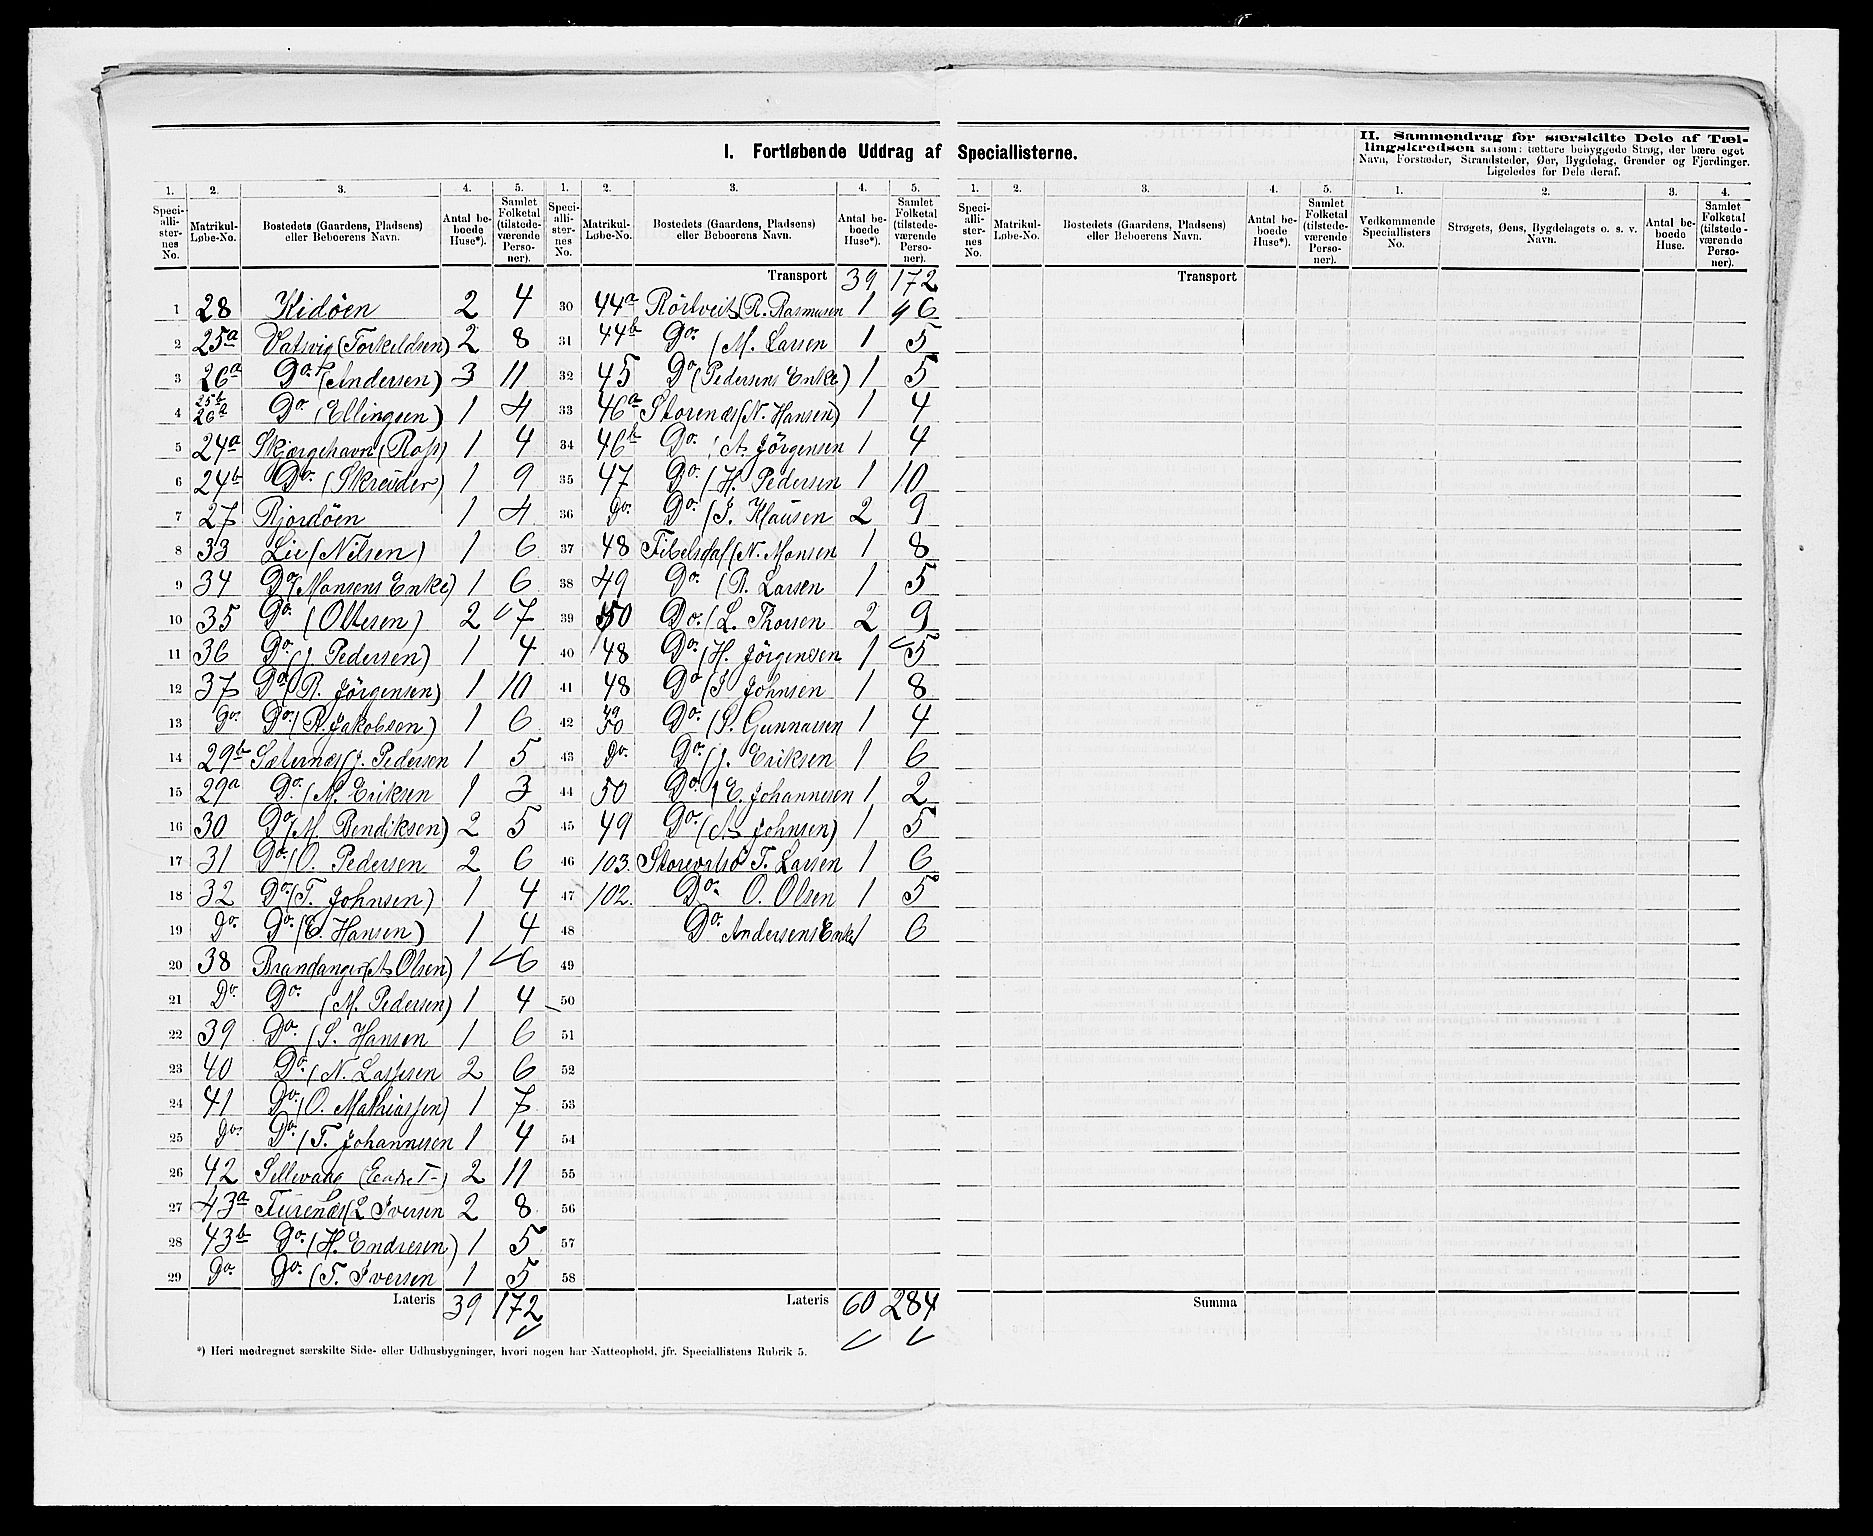 I. Fortløbende Uddrag af Speciallisterne.
II. Sammendrag for særskilte Dele af Tællingskredsen saasom: tættere bebyggede Strøg, der bære eget
Navn, Forstæder, Strandsteder, Øer, Bygdelag, Grender og Fjerdinger.
Ligeledes for Dele deraf.
1. 2. 3. 4. 5. 1. 2. 3. 4. 5. 1. 2. 3. 4. 5. 1. 2. 3. 4.
Speciallisternes No. Matrikul-Løbe-No. Bostedets (Gaardens, Pladsens) eller Beboerens Navn. Antal beboede Huse*). Samlet Folketal (tilstedeværende Personer).
Speciallisternes No. Matrikul-Løbe-No. Bostedets (Gaardens, Pladsens) eller Beboerens Navn. Antal beboede Huse*). Samlet Folketal (tilstedeværende Personer).
Speciallisternes No. Matrikul-Løbe-No. Bostedets (Gaardens, Pladsens) eller Beboerens Navn. Antal beboede Huse*). Samlet Folketal (tilstedeværende Personer).
Vedkommende Speciallisters No. Strøgets, Øens, Bygdelagets o. s. v. Navn. Antal beboede Huse. Samlet Folketal (tilstedeværende Personer).
1 28 Kidöen 2 4
2 25a Vatsvig (Torkeldsen) 2 8
3 26a Do. (Andersen) 3 11
4 25b 26a Do. (Ellingsen) 1 4
5 24a Skjærgehavn (Ross) 1 4
6 24b Do. (Skreuder) 1 9
7 27 Rjordöen 1 4
8 33 Lie (Nilsen) 1 6
9 34 Do. (Monsens Enke) 1 6
10 35 Do. (Oltesen) 2 7
11 36 Do. (J. Pedersen) 1 4
12 37 Do. (R. Jörgensen) 1 10
13 Do. Do. (R. Jakobsen) 1 6
14 29b Sæternæs (J. Pedersen 1 5
15 29a Do. (N. Eriksen 1 3
16 30 Do. (M. Bendiksen) 2 5
17 31 Do. (O. Pedersen 2 6
18 32 Do. (T. Johnsen) 1 4
19 Do. Do. (E. Hansen) 1 4
20 38 Brandanger (A. Olsen) 1 6
21 Do. Do. (M. Pedersen) 1 4
22 39 Do. (S. Hansen 1 6
23 40 Do. (N. Lassesen 2 6
24 41 Do. (O. Mathiassen) 1 7
25 Do. Do. (T. Johannesen 1 4
26 42 Sellevaag (Endre T-) 2 11
27 43a Furenæs (L Iversen 2 8
28 43b Do. (H. Endresen) 1 5
29 Do. Do. (T. Iversen 1 5
Lateris 39 172
Transport 39 172
30 44a Rörtveit (R. Rasmusen 1 6
31 44b Do. (M. Larsen 1 5
32 45 Do (Pedersens Enke) 1 5
33 46a Storenæs (N. Hansen) 1 4
34 46b Do. (A. Jörgensen 1 4
35 47 Do. (H. Pedersen 1 10
36 Do. Do. (J. Klausen 2 9
37 48 Tibelsdal (N. Monsen 1 8
38 49 Do. (R. Larsen 1 5
39 50 Do. (L. Thorsen 2 9
40 48 Do. (H. Jörgensen 1 5
41 48 Do (J Johnsen 1 8
42 49 50 Do. (S. Gunnarsen 1 4
43 Do. Do. (J. Eriksen 1 6
44 50 Do. (E. Johannesen 1 2
45 49 Do. (A. Johnsen) 1 5
46 103. Storevatsö T. Larsen 1 6
47 102. Do. O. Olsen 1 5
48 Do. Andersens Enke 1 6
49
50
51
52
53
54
55
56
57
58
Lateris 60 284
Transport
Summa
*) Heri medregnet særskilte Side- eller Udhusbygninger, hvori nogen har Natteophold, jfr. Speciallistens Rubrik 5.